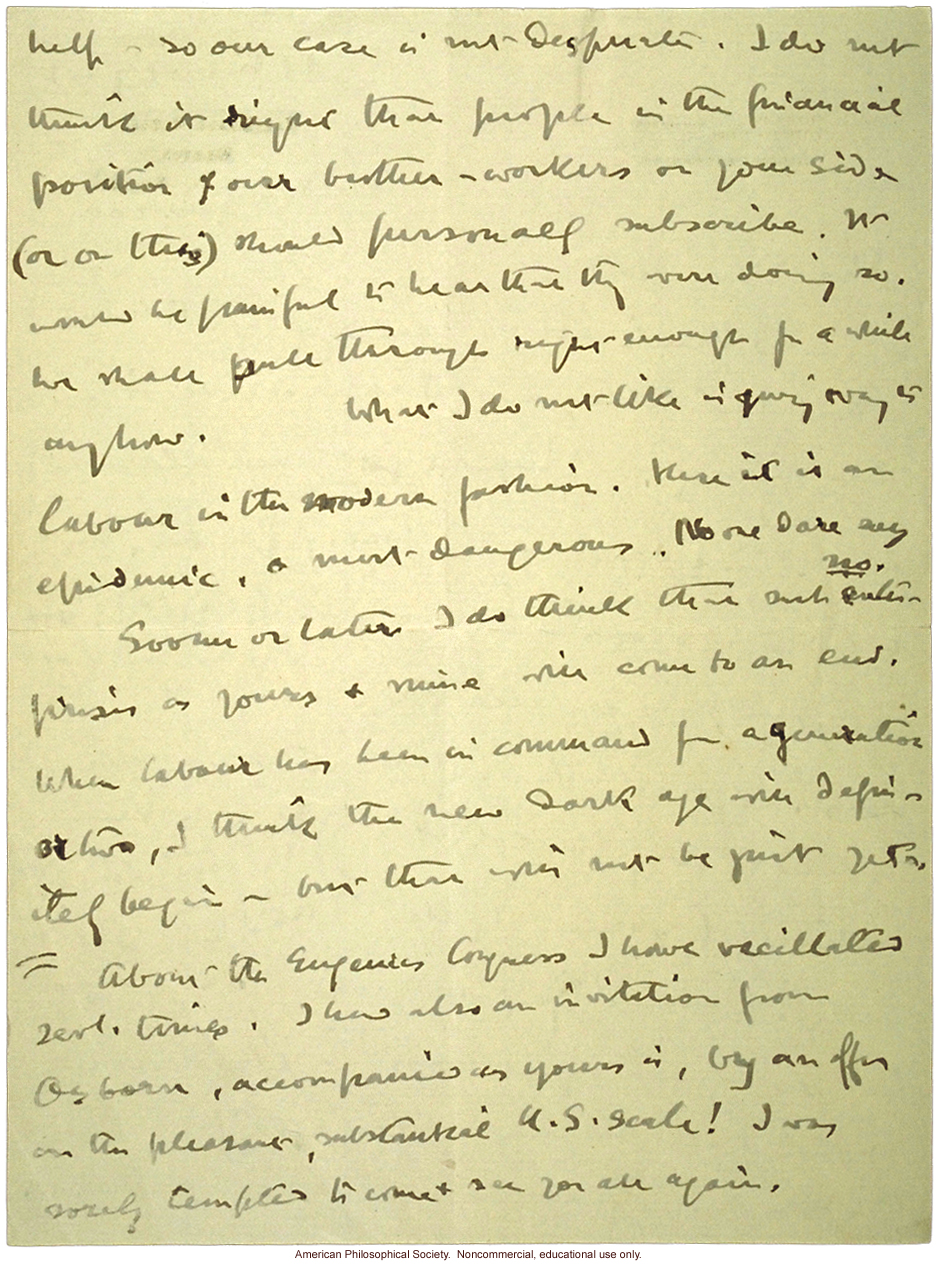 help - so our case is not desperate. I do not
think it right that people in the financial
position of our brother-workers on your side
(or on this) should personally subscribe. It
would be painful to hear that they were doing so.
We shall pull through right enough for a while
anyhow. What I do not like is giving way to
labour in the modern fashion. Here it is an
epidemic, & most dangerous. No one dare say
no.
Sooner or later I do think that such enter-
prises as yours & mine will come to an end.
When labour has been in command for a generation
or two, I think the new dark age will defin-
itely begin - but there will not be just yet.
About the Eugenics Congress I have vacillated
sevl. times. I have also an invitation from
Osborn, accompanied as yours is, by an offer
on the pleasant, substantial U.S. scale! I was
sorely tempted to come & see you all again.
American Philosophical Society. Noncommercial, educational use only.